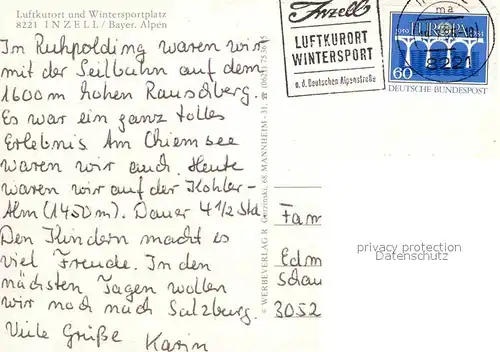 Luftkurort und Wintersportplatz
8221 INZELL/Bayer. Alpen
Im Ruhpolding waren wir
mit der Seilbahn auf dem
1600m hohen Rauschberg.
Es war ein ganz tolles
Erlebnis. Am Chiemsee
waren wir auch. Heute
waren wir auf der Kohler-
Alm (1450m). Dauer 4 1/2 Std.
Den Kindern macht es
viel Freude. In den
nächsten Tagen wollen
wir noch nach Salzburg.
Viele Grüße Karin
© WERBEVERLAG R 68 MANNHEIM-31
Inzell
LUFTKURORT
WINTERSPORT
a. d. Deutschen Alpenstraße
EUROPA
8221
60
DEUTSCHE BUNDESPOST
Fam
Edm
Schau
3052
privacy protection
Datenschutz